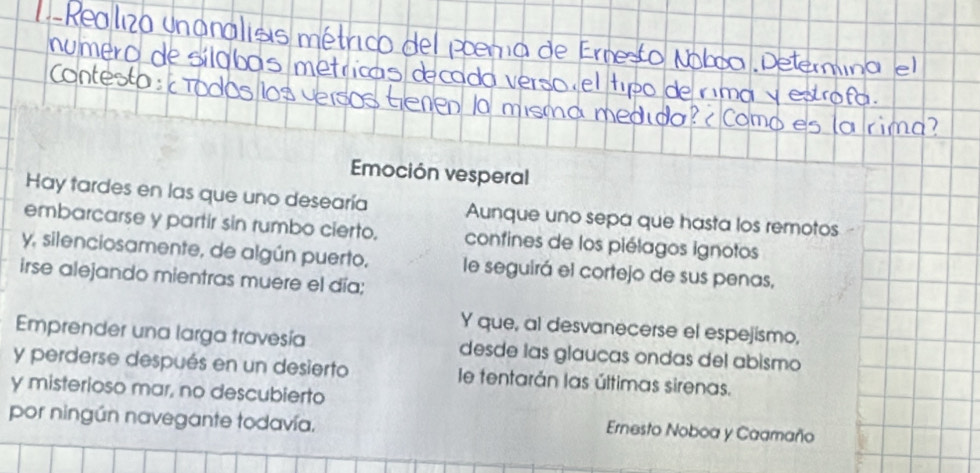 1.-Realizo un analisis métrico del poema de Ernesto Noboa. Determina el
numero de silabas metricas de cada verso, el tipo de rima y estrofa.
Contesto: ¿Todos los versos tienen la misma medida? ¿Como es la rima?
Emoción vesperal
Hay tardes en las que uno desearía
embarcarse y partir sin rumbo cierto,
y, silenciosamente, de algún puerto,
irse alejando mientras muere el día;
Emprender una larga travesía
y perderse después en un desierto
y misterioso mar, no descubierto
por ningún navegante todavía.
Aunque uno sepa que hasta los remotos
confines de los piélagos ignotos
le seguirá el cortejo de sus penas,
Y que, al desvanecerse el espejismo,
desde las glaucas ondas del abismo
le tentarán las últimas sirenas.
Ernesto Noboa y Caamaño